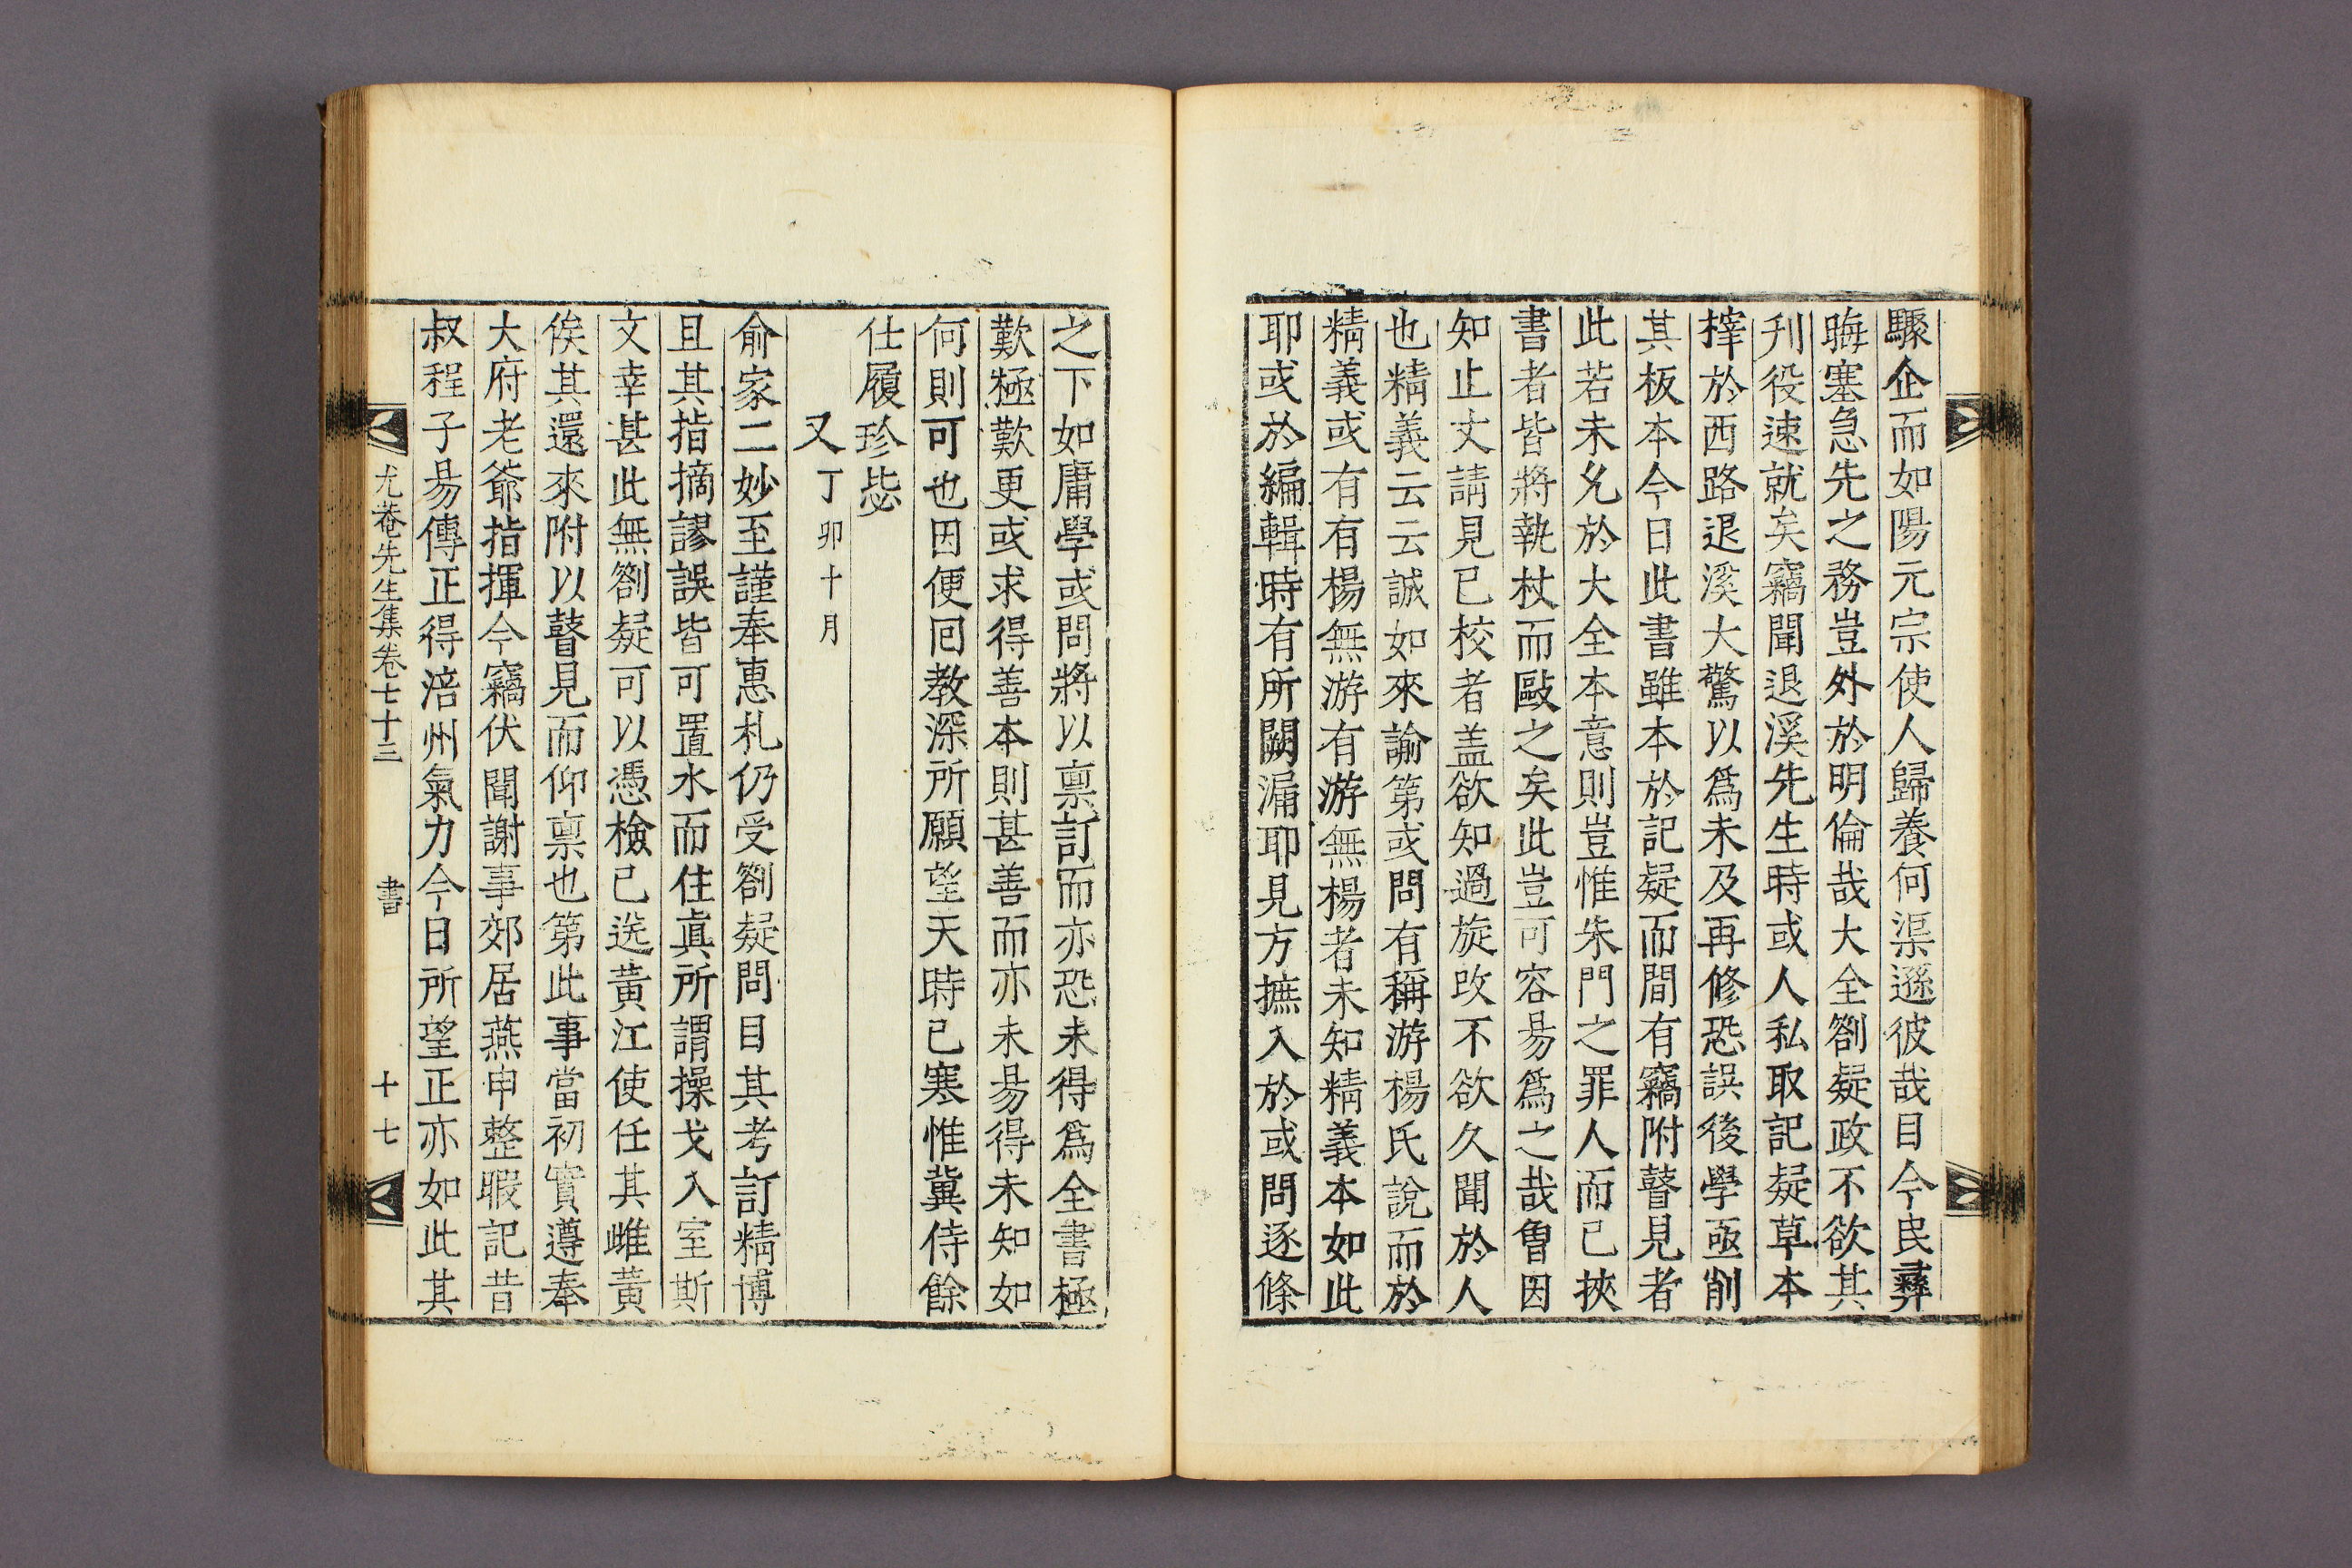 驟企而如陽元宗使人歸養何渠遜彼哉目今民彝
晦塞急先之務豈外於明倫哉大全劄疑政不欲其
刋役速就矣竊聞退溪先生時或人私取記疑草本
榟於西路退溪大驚以爲未及再修恐誤後學亟削
其板本今日此書雖本於記疑而間有竊附瞽見者
此若未允於大全本意則豈惟朱門之罪人而已挾
書者皆將執杖而毆之矣此豈可容易爲之哉曾因
知止丈請見已校者盖欲知過旋改不欲久聞於人
也精義云云誠如來諭第或問有稱游楊氏說而於
精義或有有楊無游有游無楊者未知精義本如此
耶或於編輯時有所闕漏耶見方摭入於或問逐條
之下如庸學或問將以禀訂而亦恐未得爲全書極
歎極歎更或求得善本則甚善而亦未易得未知如
何則可也因便回教深所願望天時已寒惟冀侍餘
仕履珍毖
又丁卯十月
俞家二妙至謹奉惠札仍受劄疑問目其考訂精博
且其指摘謬誤皆可置水而住眞所謂操戈入室斯
文幸甚此無劄疑可以憑檢已送黃江使任其雌黃
俟其還來附以瞽見而仰禀也第此事當初實遵奉
大府老爺指揮今竊伏聞謝事郊居燕申整暇記昔
叔程子易傳正得涪州氣力今日所望正亦如此其
尤菴先生集卷七十三 書 十七